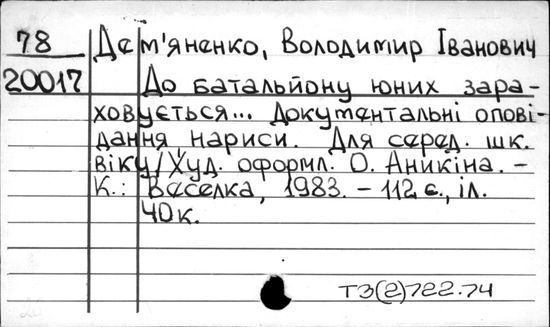 78 Дем'яненко, Володимир Іванович
20017 До батальйону юних зара-
ховується... Документальні опові-
дання, нариси. Для серед. шк.
віку/Худ. оформл. О. Аникіна. –
К.: Веселка, 1983. – 112 с., іл.
40к.
Т3(2)722.74